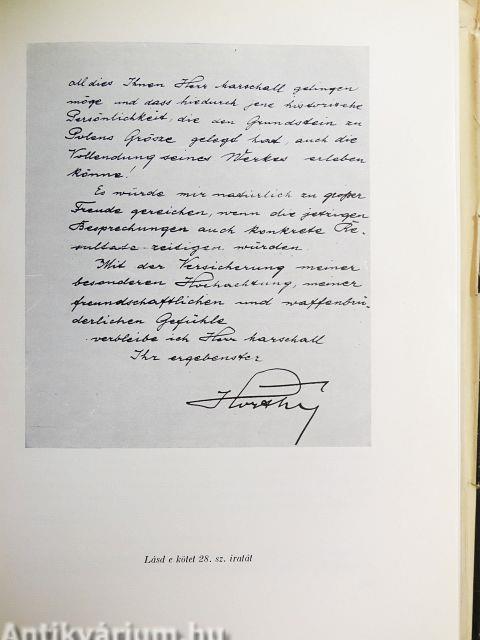 all dies Ihnen Herr Marschall gelingen
möge und dass hiedurch jene historische
Persönlichkeit, die den Grundstein zu
Polens Grösze gelegt had, auch die
Vollendung seines Werkes erleben
könne!
Es würde mir nadürlich zu groszer
Freude gereichen, wenn die jetzigen
Besprechungen auch konkrete Re-
sultade zeitigen würden.
Mit der Versicherung meiner
besonderen Hochachtung, meiner
freundschaftlichen und waffenbrü-
derlichen Gefühle
verbleibe ich Herr Marschall
Ihr ergebenster
Horthy
Lásd e kötet 28. sz. iratát
Antikvárium.hu